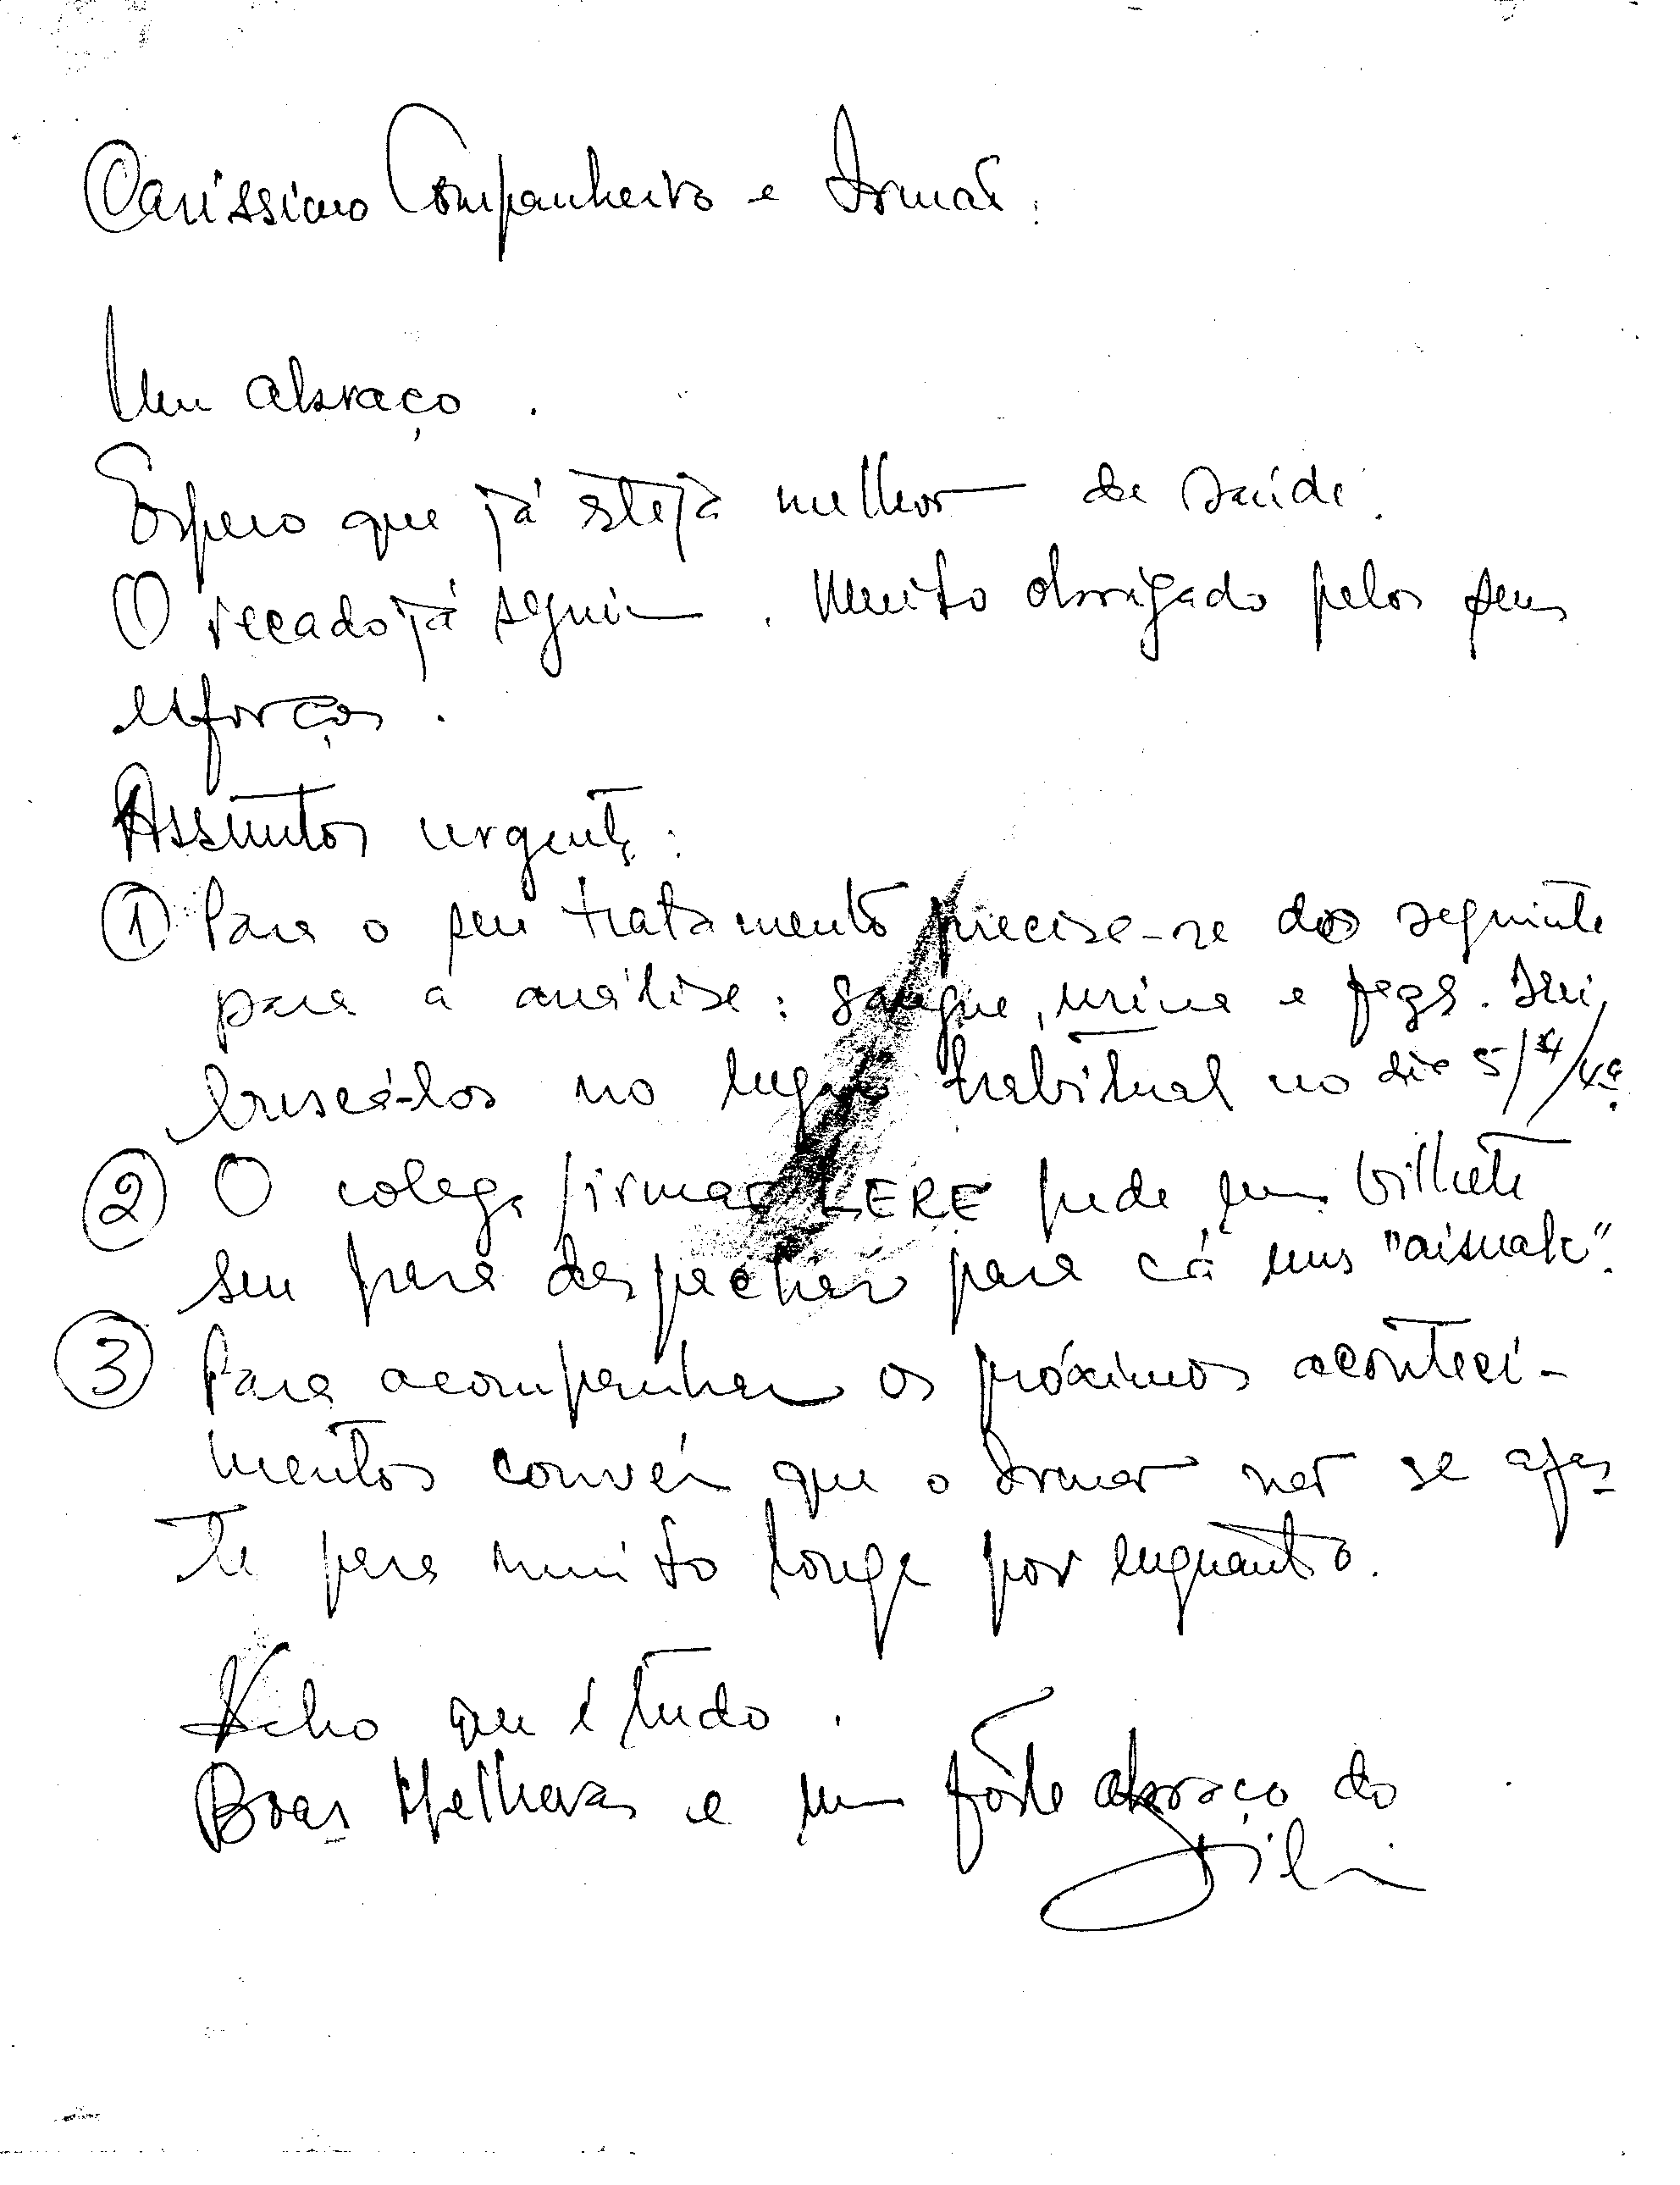 Caríssimo Companheiro e Irmão:
Um abraço.
Espero que já esteja melhor de saúde.
O recado já seguiu. Muito obrigado pelos seus
esforços.
Assuntos urgentes:
① Para o seu tratamento precisa-se dos seguinte
para a análise: sangue, urina e fezes. Irei
buscá-los no lugar habitual no dia 5/4/4ª.
② O colega firmar LERE pede um bilhete
seu para despachar para cá uns
③ Para acompanhar os próximos aconteci-
mentos convém que o Irmão não se afas-
te para muito longe por enquanto.
Acho que é tudo.
Boas Melhoras e um forte abraço do